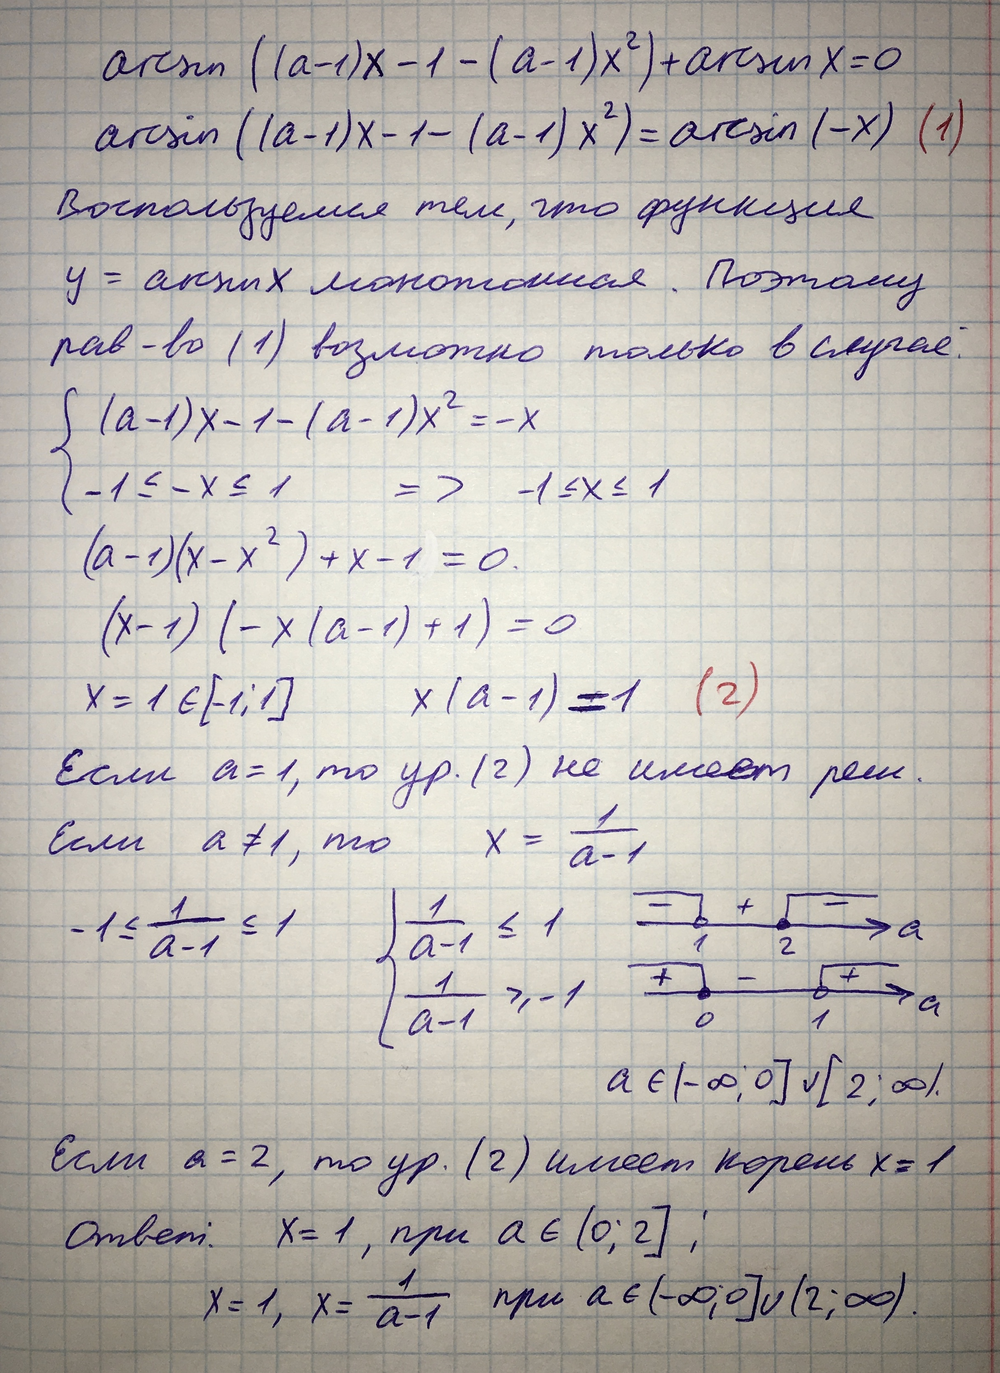 arcsin ((a-1)x - 1 - (a-1)x²) + arcsin x = 0
arcsin ((a-1)x - 1 - (a-1)x²) = arcsin (-x) (1)
Воспользуемся тем, что функция
y = arcsin x монотонная. Поэтому
рав-во (1) возможно только в случае:
{ (a-1)x - 1 - (a-1)x² = -x
-1 ≤ -x ≤ 1 => -1 ≤ x ≤ 1
(a-1)(x - x²) + x - 1 = 0.
(x-1) (-x(a-1) + 1) = 0
x = 1 ∈ [-1; 1] x(a-1) = 1 (2)
Если a = 1, то ур. (2) не имеет реш.
Если a ≠ 1, то x = 1/(a-1)
-1 ≤ 1/(a-1) ≤ 1 { 1/(a-1) ≤ 1 - + - 1 2 a
1/(a-1) ≥ -1 + - + 0 1 a
a ∈ (-∞; 0] ∪ [2; ∞).
Если a = 2, то ур. (2) имеет корень x = 1
Ответ: x = 1, при a ∈ (0; 2] ;
x = 1, x = 1/(a-1) при a ∈ (-∞; 0] ∪ (2; ∞).